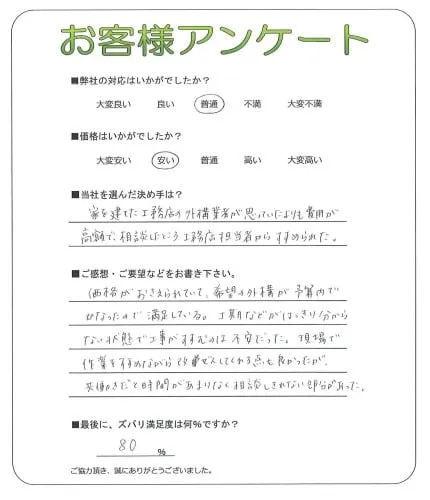 お客様アンケート
■弊社の対応はいかがでしたか？
大変良い 良い 普通 不満 大変不満
■価格はいかがでしたか？
大変安い 安い 普通 高い 大変高い
■当社を選んだ決め手は？
家を建てた工務店の外構業者が思っていたよりも費用が
高額で、相談したところ工務店担当者からすすめられた。
■ご感想・ご要望などをお書き下さい。
価格がおさえられていて、希望の外構が予算内で
できたので満足している。工期などがはっきり分から
ない状態で工事がすすむのは不安だった。現場で
作業をすすめながら改善してくれる点も良かったが、
共働きだと時間があまりなく相談しきれない部分があった。
■最後に、ズバリ満足度は何%ですか？
80 %
ご協力頂き、誠にありがとうございました。